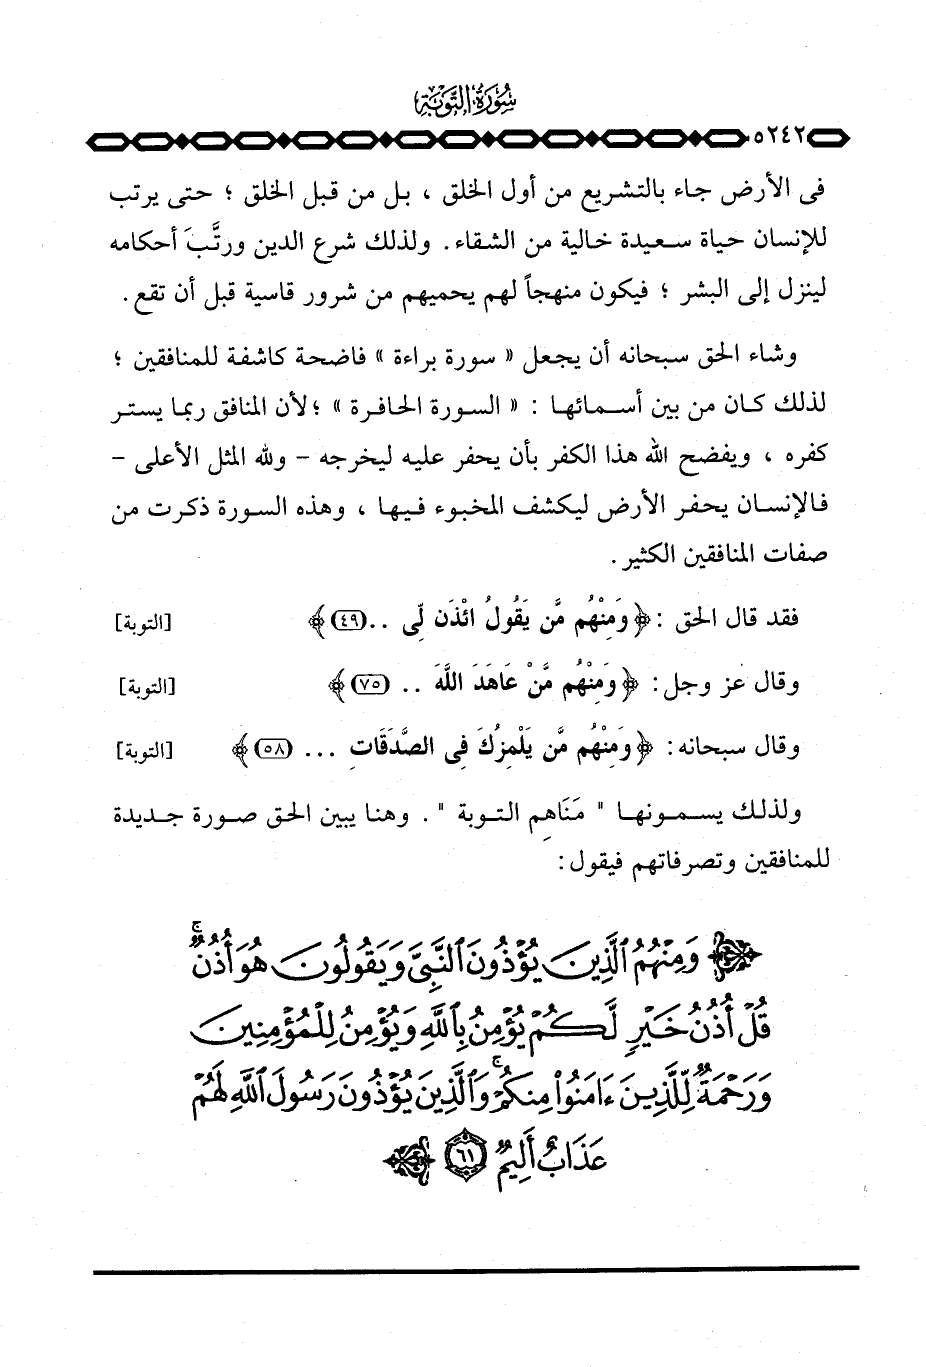 سُورَةُ التَّوْبَةِ
٥٢٤٢
فى الأرض جاء بالتشريع من أول الخلق ، بل من قبل الخلق ؛ حتى يرتب
للإنسان حياة سعيدة خالية من الشقاء . ولذلك شرع الدين ورتَّبَ أحكامه
لينزل إلى البشر ؛ فيكون منهجاً لهم يحميهم من شرور قاسية قبل أن تقع .
وشاء الحق سبحانه أن يجعل « سورة براءة » فاضحة كاشفة للمنافقين ؛
لذلك كان من بين أسمائها : « السورة الحافرة » ؛ لأن المنافق ربما يستر
كفره ، ويفضح الله هذا الكفر بأن يحفر عليه ليخرجه – ولله المثل الأعلى –
فالإنسان يحفر الأرض ليكشف المخبوء فيها ، وهذه السورة ذكرت من
صفات المنافقين الكثير .
فقد قال الحق : ﴿ وَمِنْهُم مَّن يَقُولُ ائْذَن لِّى .. (٤٩) ﴾ [التوبة]
وقال عز وجل : ﴿ وَمِنْهُم مَّنْ عَاهَدَ اللَّهَ .. (٧٥) ﴾ [التوبة]
وقال سبحانه : ﴿ وَمِنْهُم مَّن يَلْمِزُكَ فِى الصَّدَقَاتِ ... (٥٨) ﴾ [التوبة]
ولذلك يسمونها " مَنَاهِم التوبة " . وهنا يبين الحق صورة جديدة
للمنافقين وتصرفاتهم فيقول :
﴿ وَمِنْهُمُ ٱلَّذِينَ يُؤْذُونَ ٱلنَّبِىَّ وَيَقُولُونَ هُوَ أُذُنٌ ۚ
قُلْ أُذُنُ خَيْرٍ لَّكُمْ يُؤْمِنُ بِٱللَّهِ وَيُؤْمِنُ لِلْمُؤْمِنِينَ
وَرَحْمَةٌ لِّلَّذِينَ ءَامَنُوا۟ مِنكُمْ ۚ وَٱلَّذِينَ يُؤْذُونَ رَسُولَ ٱللَّهِ لَهُمْ
عَذَابٌ أَلِيمٌ (٦١) ﴾